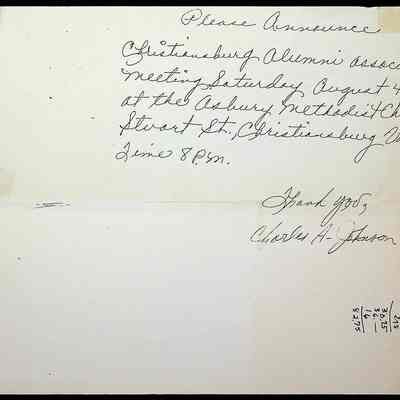 Please Announce
Christiansburg Alumni associ
Meeting Saturday August 4
at the Asbury Methodist Ch
Stuart St., Christiansburg V
Time 8 P.m.
Thank you,
Charles A. Johnson
36.75
16
82.75